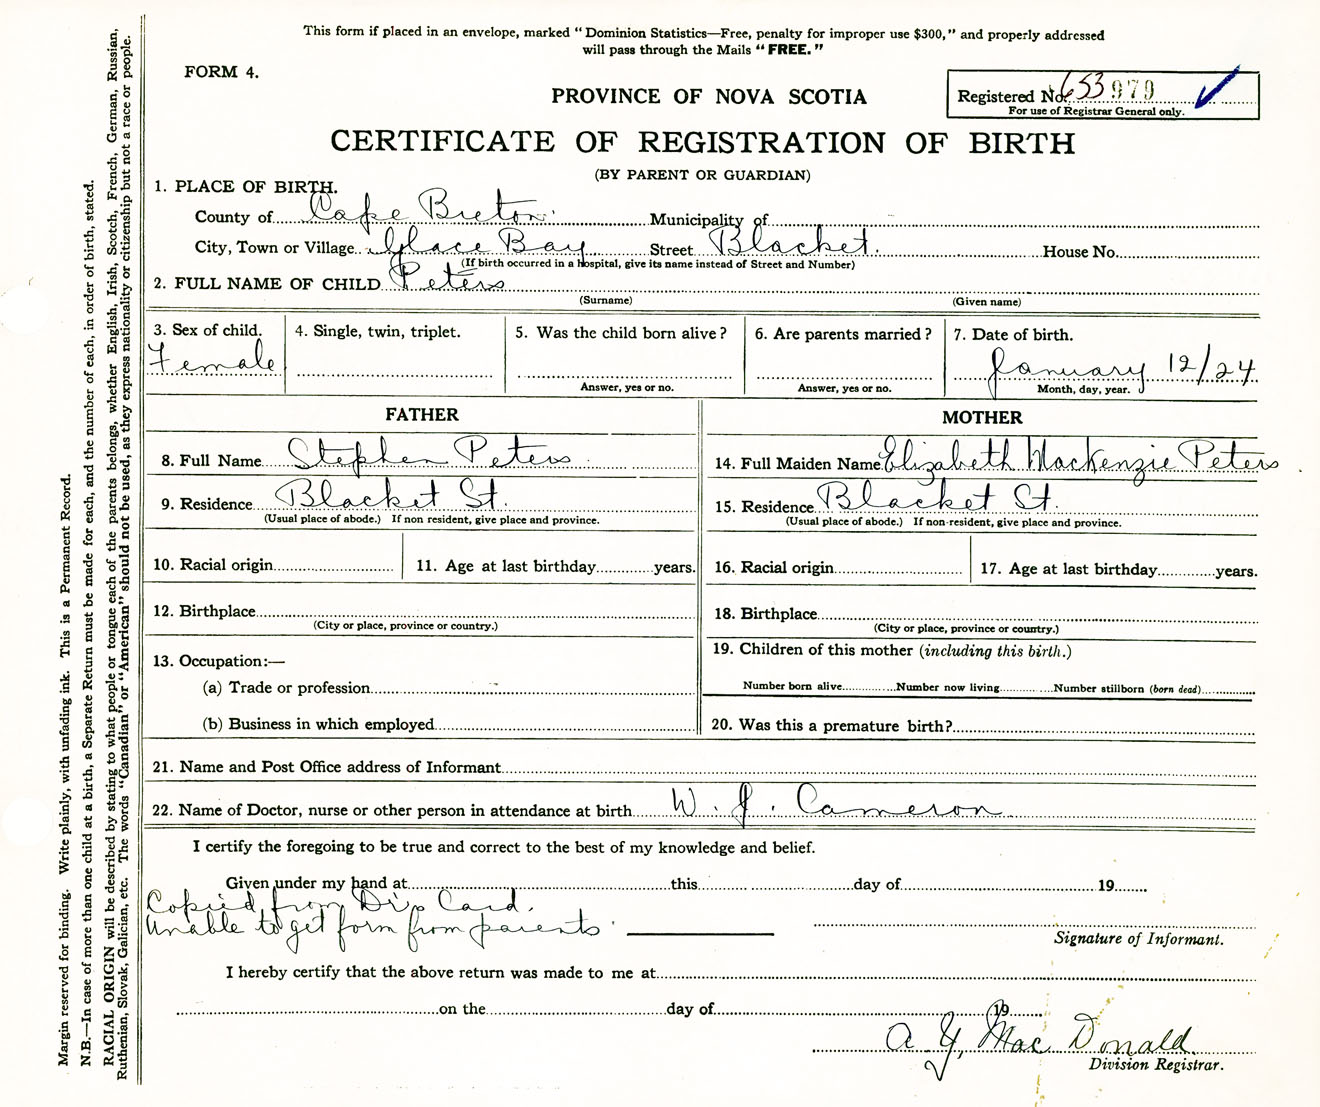 This form if placed in an envelope, marked "Dominion Statistics—Free, penalty for improper use $300," and properly addressed
will pass through the Mails "FREE."
FORM 4.
PROVINCE OF NOVA SCOTIA
Registered No. 653979
For use of Registrar General only.
CERTIFICATE OF REGISTRATION OF BIRTH
(BY PARENT OR GUARDIAN)
1. PLACE OF BIRTH.
County of Cape Breton Municipality of
City, Town or Village Glace Bay Street Blacket. House No.
(If birth occurred in a hospital, give its name instead of Street and Number)
2. FULL NAME OF CHILD Peters
(Surname) (Given name)
3. Sex of child. 4. Single, twin, triplet. 5. Was the child born alive? 6. Are parents married? 7. Date of birth.
Female January 12/24
Answer, yes or no. Answer, yes or no. Month, day, year.
FATHER MOTHER
8. Full Name Stephen Peters 14. Full Maiden Name Elizabeth MacKenzie Peters
9. Residence Blacket St. 15. Residence Blacket St.
(Usual place of abode.) If non resident, give place and province. (Usual place of abode.) If non-resident, give place and province.
10. Racial origin 11. Age at last birthday years. 16. Racial origin 17. Age at last birthday years.
12. Birthplace 18. Birthplace
(City or place, province or country.) (City or place, province or country.)
13. Occupation:— 19. Children of this mother (including this birth.)
(a) Trade or profession Number born alive Number now living Number stillborn (born dead)
(b) Business in which employed 20. Was this a premature birth?
21. Name and Post Office address of Informant
22. Name of Doctor, nurse or other person in attendance at birth W. J. Cameron
I certify the foregoing to be true and correct to the best of my knowledge and belief.
Given under my hand at this day of 19
Copied from Drs Card.
Unable to get form from parents
Signature of Informant.
I hereby certify that the above return was made to me at
on the day of 19
A. Y. MacDonald
Division Registrar.
Margin reserved for binding. Write plainly, with unfading ink. This is a Permanent Record.
N.B.—In case of more than one child at a birth, a Separate Return must be made for each, and the number of each, in order of birth, stated.
RACIAL ORIGIN will be described by stating to what people or tongue each of the parents belongs, whether English, Irish, Scotch, French, German, Russian,
Ruthenian, Slovak, Galician, etc. The words "Canadian" or "American" should not be used, as they express nationality or citizenship but not a race or people.